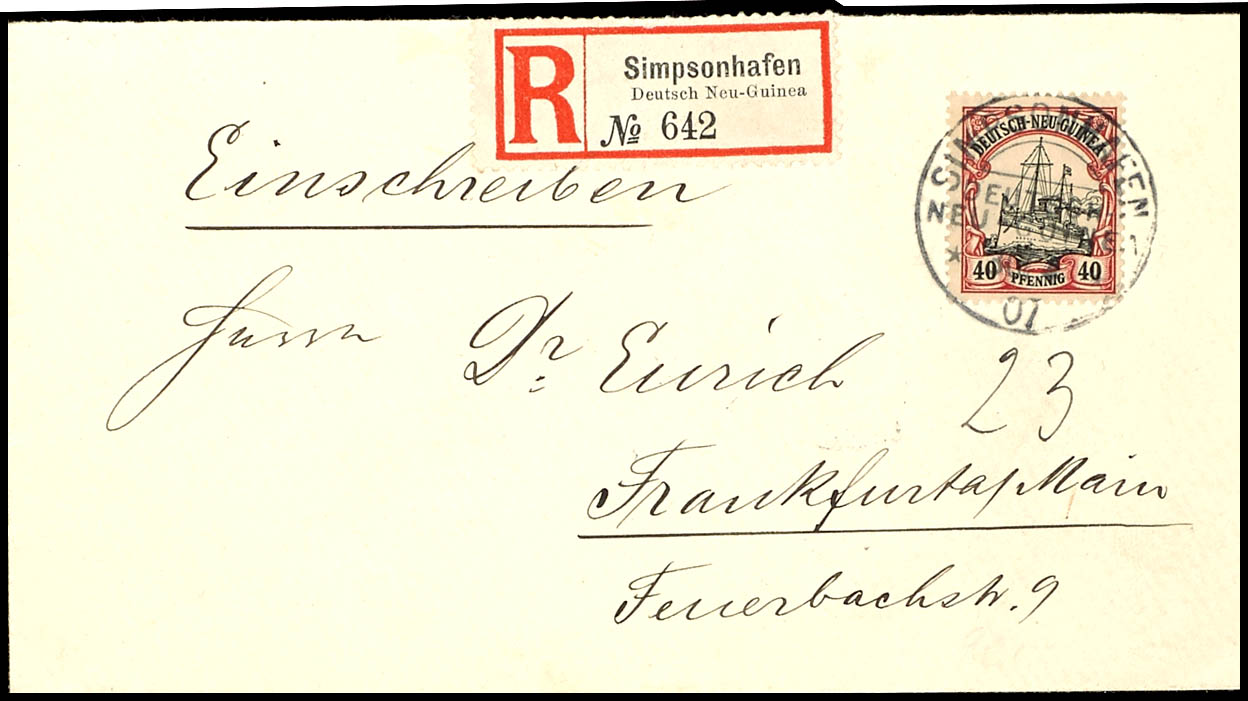 R
Simpsonhafen
Deutsch Neu-Guinea
№ 642
Einschreiben
DEUTSCH-NEU-GUINEA
40 PFENNIG 40
SIMPSONHAFEN
NEU
07
Herrn Dr. Eurich
23
Frankfurt a/Main
Feuerbachstr. 9